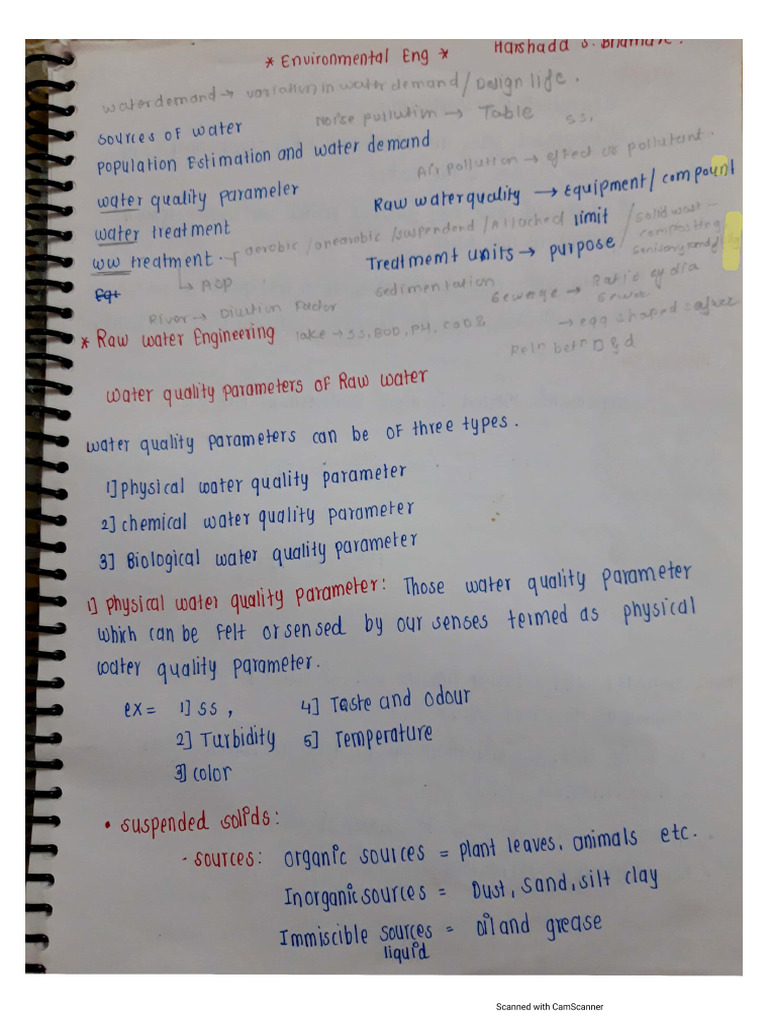 * Environmental Eng *
Harshada S.
water demand → variations in water demand / Design life.
Noise pollution → Table
SS,
sources of water
population Estimation and water demand
Air pollution → effect or pollutant.
water quality parameter
Raw water quality → Equipment / compount
water treatment
limit
ww treatment. aerobic / aneanobic / suspendend / Attached
/ solid wast - composting
Treatmemt units → purpose
↳ ASP
sedimentation
Sewage → Ratio
sewer
Eqt
River → Dilution Factor
→ egg shaped
* Raw water Engineering
lake → SS, BOD, PH, COD &
Relⁿ betⁿ D & d
water quality parameters of Raw water
water quality parameters can be of three types.
1] physical water quality parameter
2] chemical water quality parameter
3] Biological water quality parameter
1] physical water quality parameter: Those water quality parameter
which can be felt or sensed by our senses termed as physical
water quality parameter.
ex = 1] SS , 4] Taste and odour
2] Turbidity 5] Temperature
3] color
• suspended solids:
- sources: organic sources = plant leaves, animals etc.
Inorganic sources = Dust, sand, silt clay
Immiscible sources = oil and grease
liquid
Scanned with CamScanner